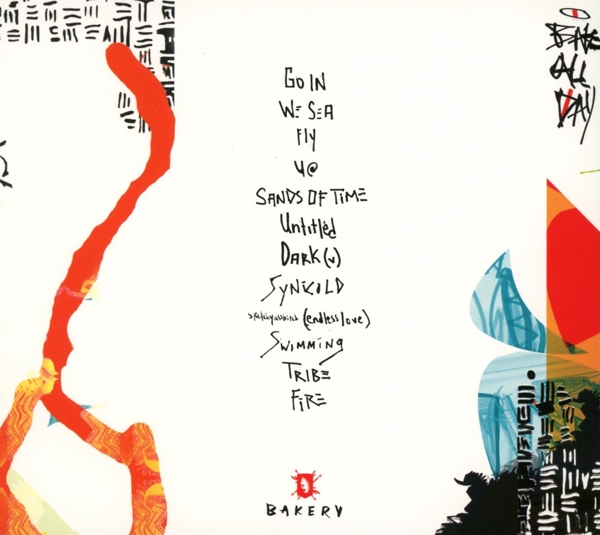 GO IN
WE SEA
Fly
U@
SANDS OF TIME
Untitled
DARK(U)
SYNKOLD
(endless love)
SWIMMING
TRIBE
FIRE
BAKERY
ALL
DAY